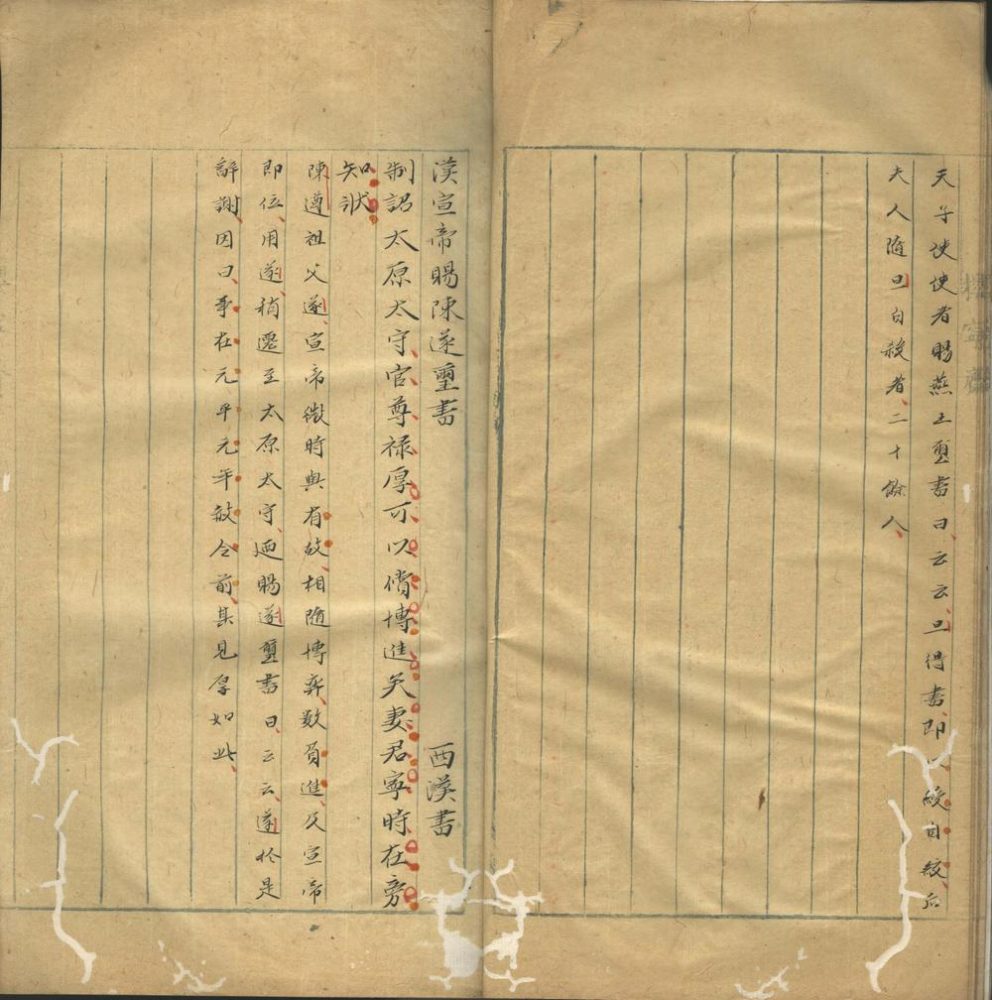 天子使使者賜燕王璽書曰云云旦得書即綬自絞后
夫人随旦自殺者二十餘人
漢宣帝賜陳遂璽書 西漢書
制詔太原太守官尊禄厚可以償博進矣妻君寧時在旁
知狀
陳遵祖父遂宣帝微時與有故相随博弈數負進及宣帝
即位用遂稍遷至太原太守迺賜遂璽書曰云云遂於是
辭謝因曰事在元平元年赦令前其見厚如此